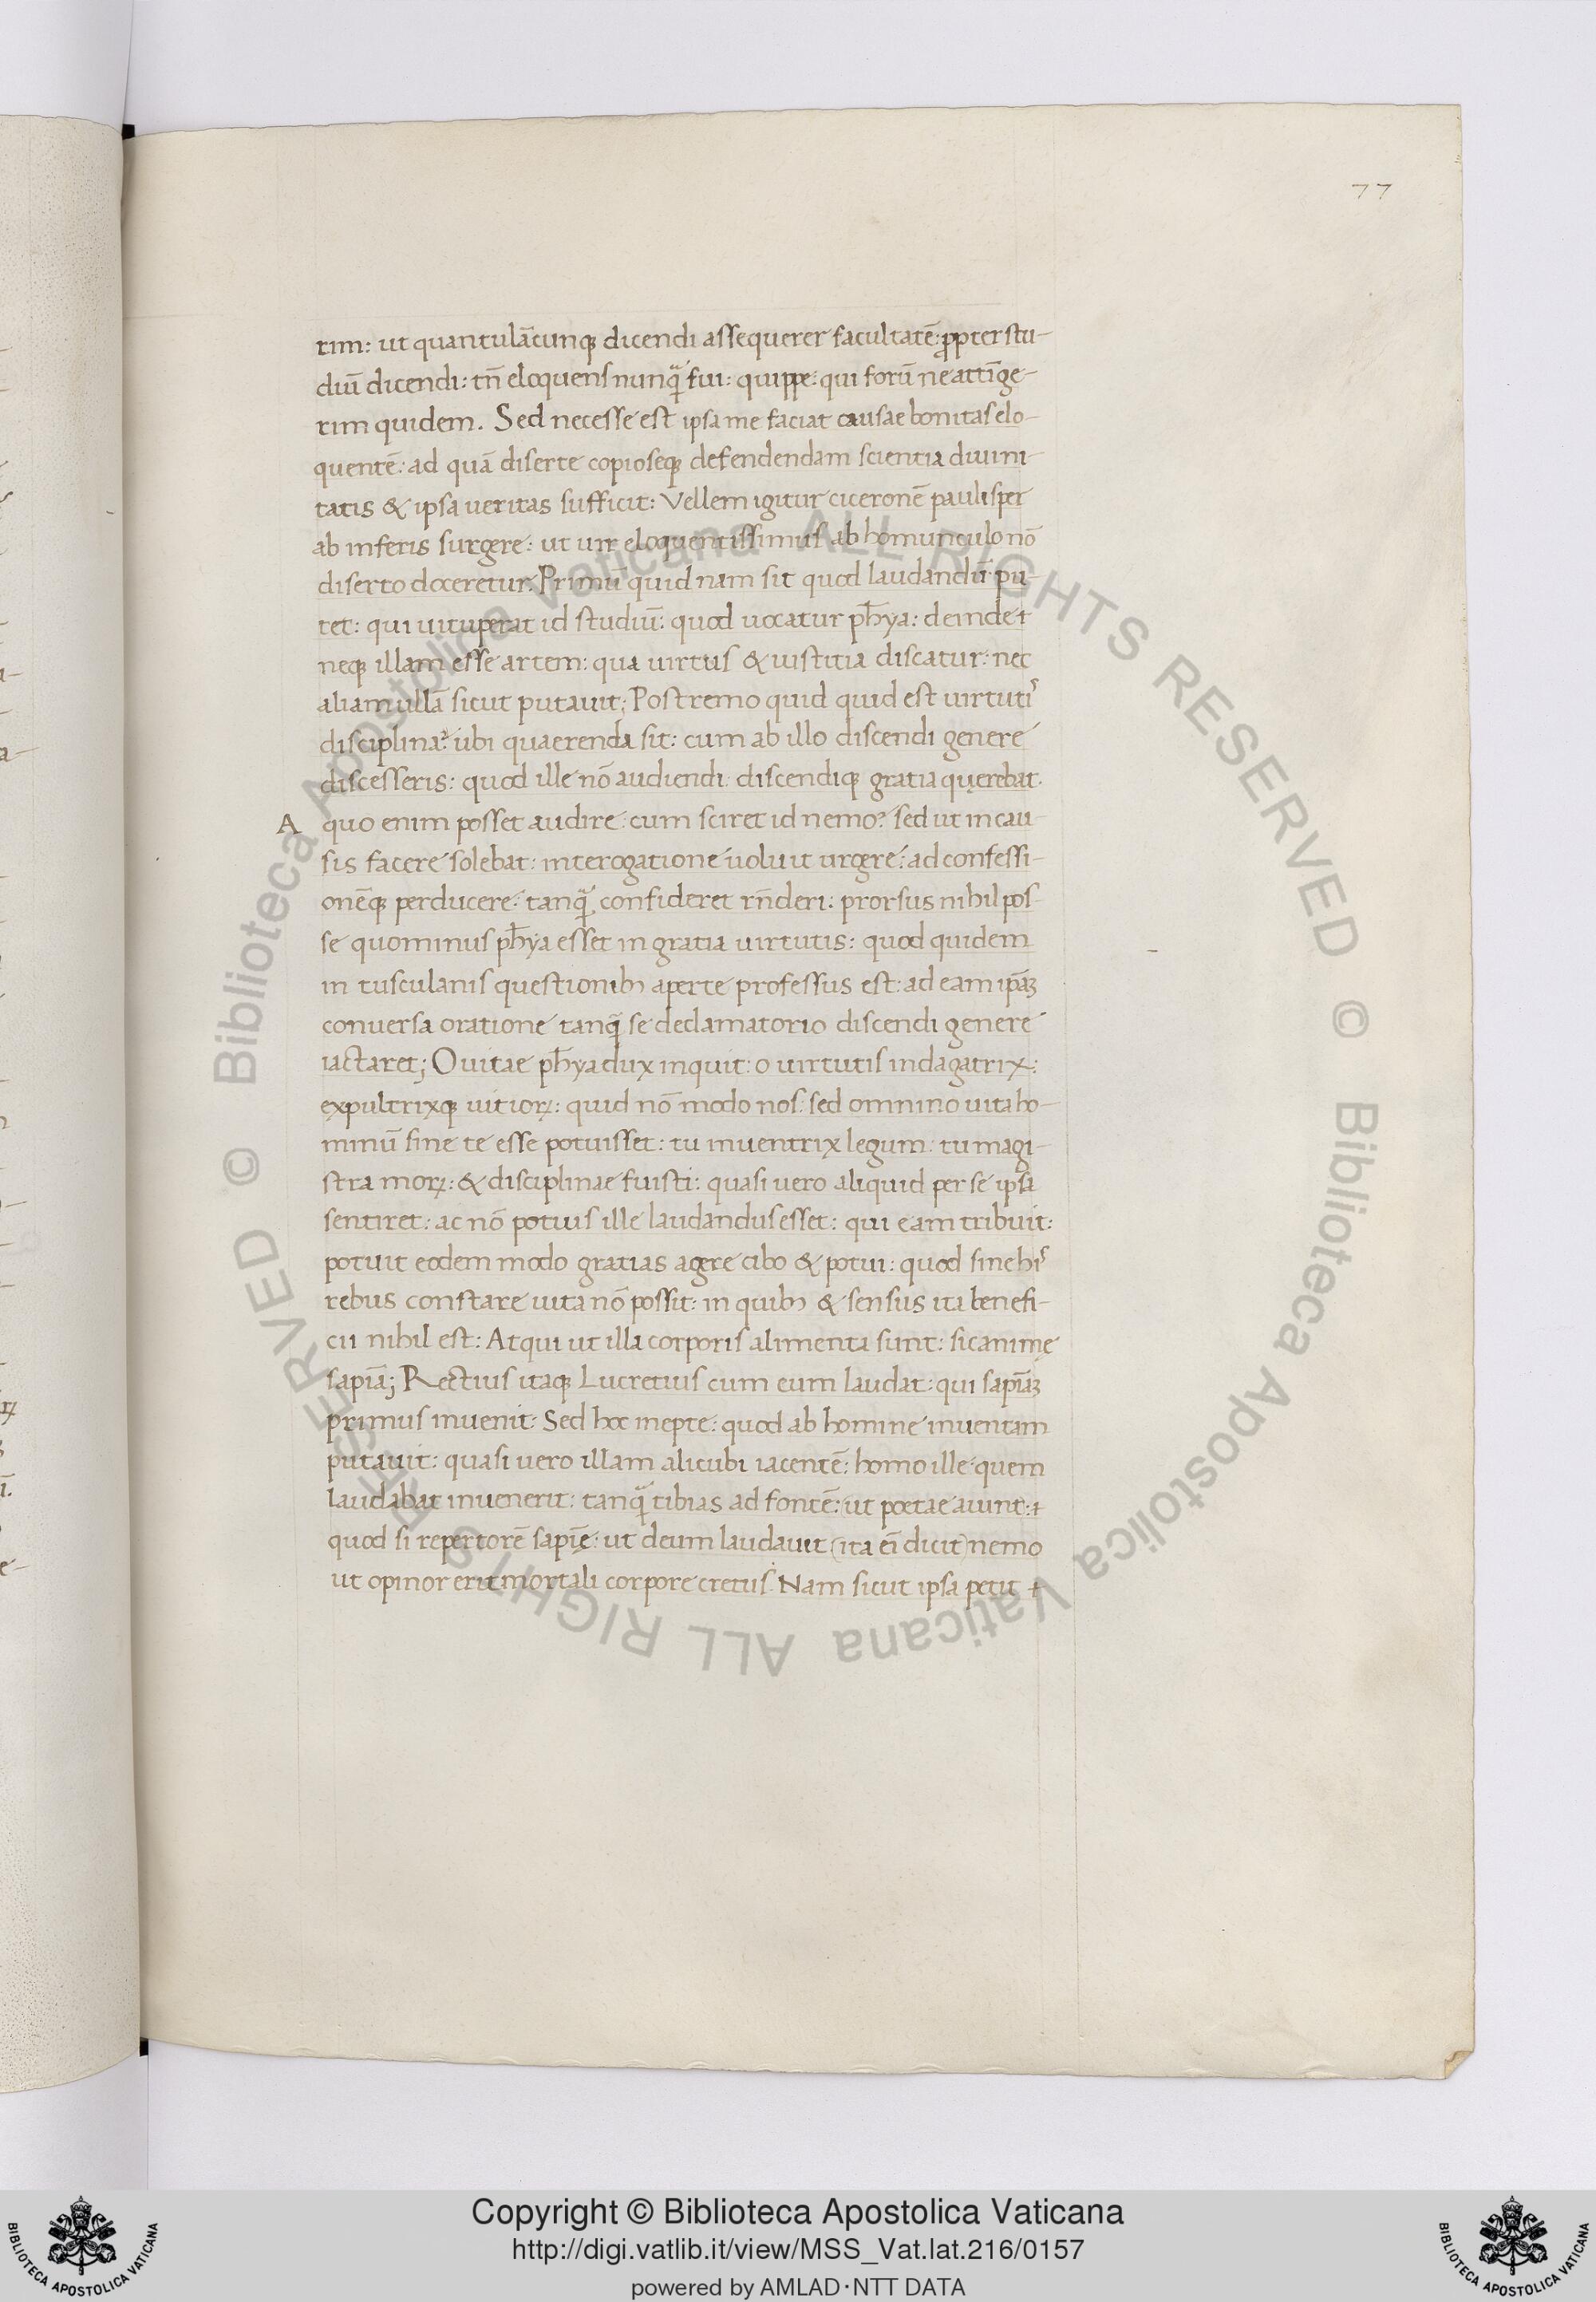 77
rim: ut quantulācunq; dicendi assequerer facultatē: ꝓpter stu-
diū dicendi: tn̄ eloquens nunq̄ fui: quippe: qui forū ne attīge-
rim quidem. Sed necesse est ipsa me faciat causae bonitas elo-
quentē: ad quā diserte copioseq; defendendam scientia diuini-
tatis & ipsa ueritas sufficit: Vellem igitur ciceronē paulisper
ab inferis surgere: ut uir eloquentissimus ab homunculo nō
diserto doceretur. Primū quid nam sit quod laudandū pu-
tet: qui uituperat id studiū: quod uocatur ph̄ya: deinde
neq; illam esse artem: qua uirtus & iustitia discatur: nec
aliam ullā sicut putauit; Postremo quid quid est uirtutis
disciplina: ubi quaerenda sit: cum ab illo discendi genere
discesseris: quod ille nō audiendi discendiq; gratia quęrebat.
A quo enim posset audire: cum sciret id nemo? sed ut in cau-
sis facere solebat: interogatione uoluit urgere: ad confessi-
onēq; perducere: tanq̄ confideret rn̄deri: prorsus nihil pos-
se quominus ph̄ya esset in gratia uirtutis: quod quidem
in tusculanis questionib; aperte professus est: ad eam ip̄aꝫ
conuersa oratione tanq̄ se declamatorio discendi genere
iactaret; O uitae ph̄ya dux inquit: o uirtutis indagatrix:
expultrixq; uitioꝝ: quid nō modo nos: sed omnino uita ho-
minū sine te esse potuisset: tu inuentrix legum: tu magi-
stra moꝝ: & disciplinae fuisti: quasi uero aliquid per se ipsa
sentiret: ac nō potius ille laudandus esset: qui eam tribuit:
potuit eodem modo gratias agere cibo & potui: quod sine his
rebus constare uita nō possit: in quib; & sensus ita benefi-
cii nihil est: Atqui ut illa corporis alimenta sunt: sic animę
sapīa; Rectius itaq; Lucretius cum eum laudat: qui sapīaꝫ
primus inuenit: Sed hoc inepte: quod ab homine inuentam
putauit: quasi uero illam alicubi iacentē: homo ille quem
laudabat inuenerit: tanq̄ tibias ad fontē: ut poetae aiunt:
quod si repertorē sapīę: ut deum laudauit (ita eī dicit) nemo
ut opinor erit mortali corpore cretus. Nam sicut ipsa petit
Copyright © Biblioteca Apostolica Vaticana
http://digi.vatlib.it/view/MSS_Vat.lat.216/0157
powered by AMLAD·NTT DATA
BIBLIOTECA APOSTOLICA VATICANA
BIBLIOTECA APOSTOLICA VATICANA
© Biblioteca Apostolica Vaticana ALL RIGHTS RESERVED
© Biblioteca Apostolica Vaticana ALL RIGHTS RESERVED